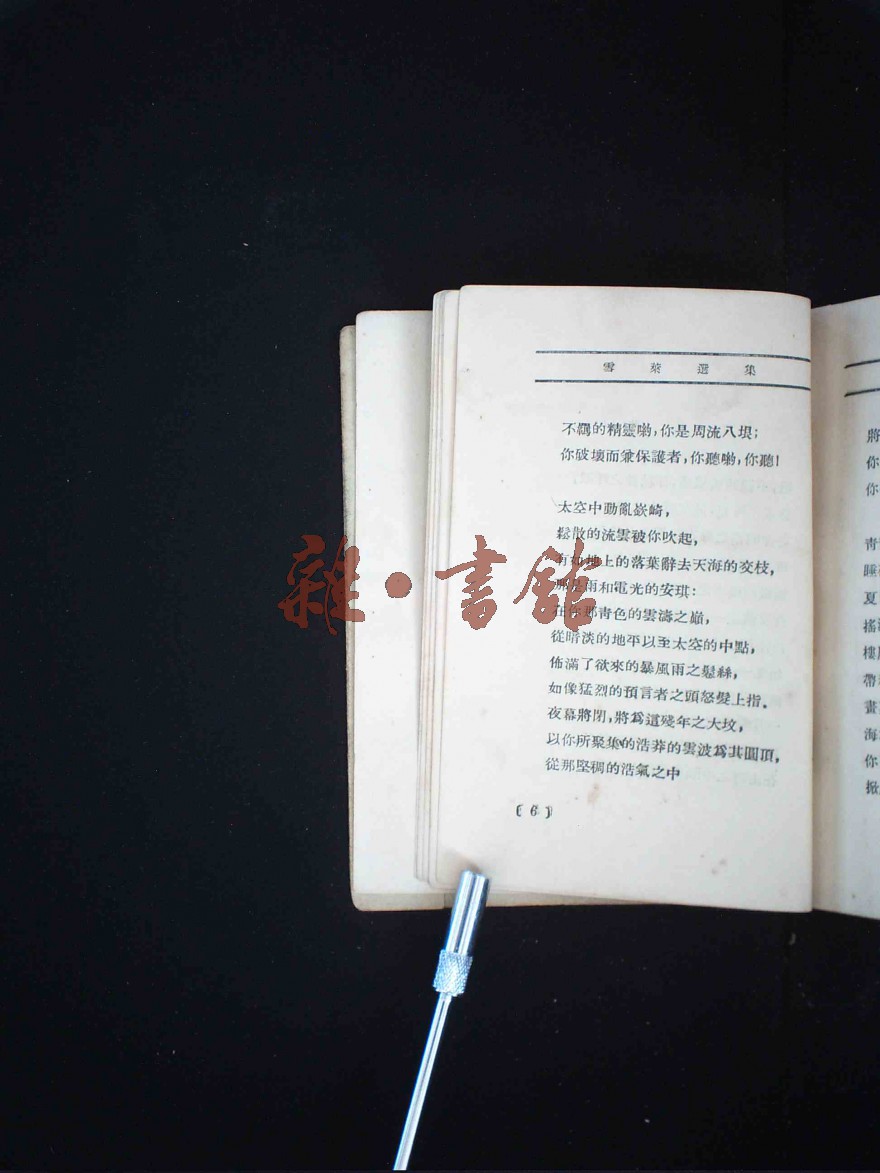 雪萊選集
不羈的精靈喲，你是周流八垠；
你破壞而兼保護者，你聽喲，你聽！
太空中動亂嶔崎，
鬆散的流雲被你吹起，
有如地上的落葉辭去天海的交枝，
是雨和電光的安琪：
在你那青色的雲濤之巔，
從暗淡的地平以至太空的中點，
佈滿了欲來的暴風雨之鬈絲，
如像猛烈的預言者之頭怒髮上指。
夜幕將閉，將爲這殘年之大坟，
以你所聚集的浩莽的雲波爲其圓頂，
從那堅稠的浩氣之中
〔6〕
雜·書館
將
你
你
青
睡
夏
搖
樓
帶
畫
海
你
掀